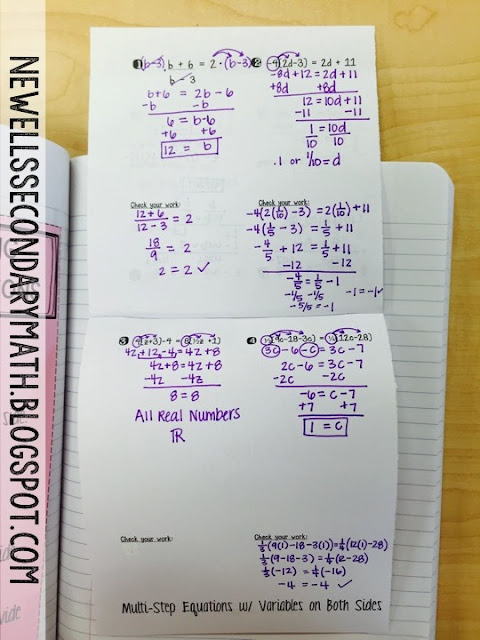 NEWELLSSECONDARYMATH.BLOGSPOT.COM
1 (b-3) b + 6 = 2 · (b-3)
b - 3
b+6 = 2b - 6
-b -b
6 = b-6
+6 +6
12 = b
Check your work:
12+6 / 12-3 = 2
18/9 = 2
2 = 2 ✓
2 -4(2d-3) = 2d + 11
-8d+12 = 2d+11
+8d +8d
12 = 10d+11
-11 -11
1/10 = 10d/10
.1 or 1/10 = d
Check your work:
-4(2(1/10) - 3) = 2(1/10) + 11
-4(1/5 - 3) = 1/5 + 11
-4/5 + 12 = 1/5 + 11
-12 -12
-4/5 = 1/5 - 1
-1/5 -1/5
-5/5 = -1
-1 = -1 ✓
3 4(z+3)-4 = 8(½z +1)
4z+12-4 = 4z+8
4z+8 = 4z+8
-4z -4z
8 = 8
All Real Numbers
ℝ
Check your work:
4 ⅓(9c-18-3c) = ¼(12c-28)
3c - 6 - c = 3c - 7
2c - 6 = 3c - 7
-2c -2c
-6 = c - 7
+7 +7
1 = c
Check your work:
⅓(9(1)-18-3(1)) = ¼(12(1)-28)
⅓(9-18-3) = ¼(12-28)
⅓(-12) = ¼(-16)
-4 = -4 ✓
Multi-Step Equations w/ Variables on Both Sides